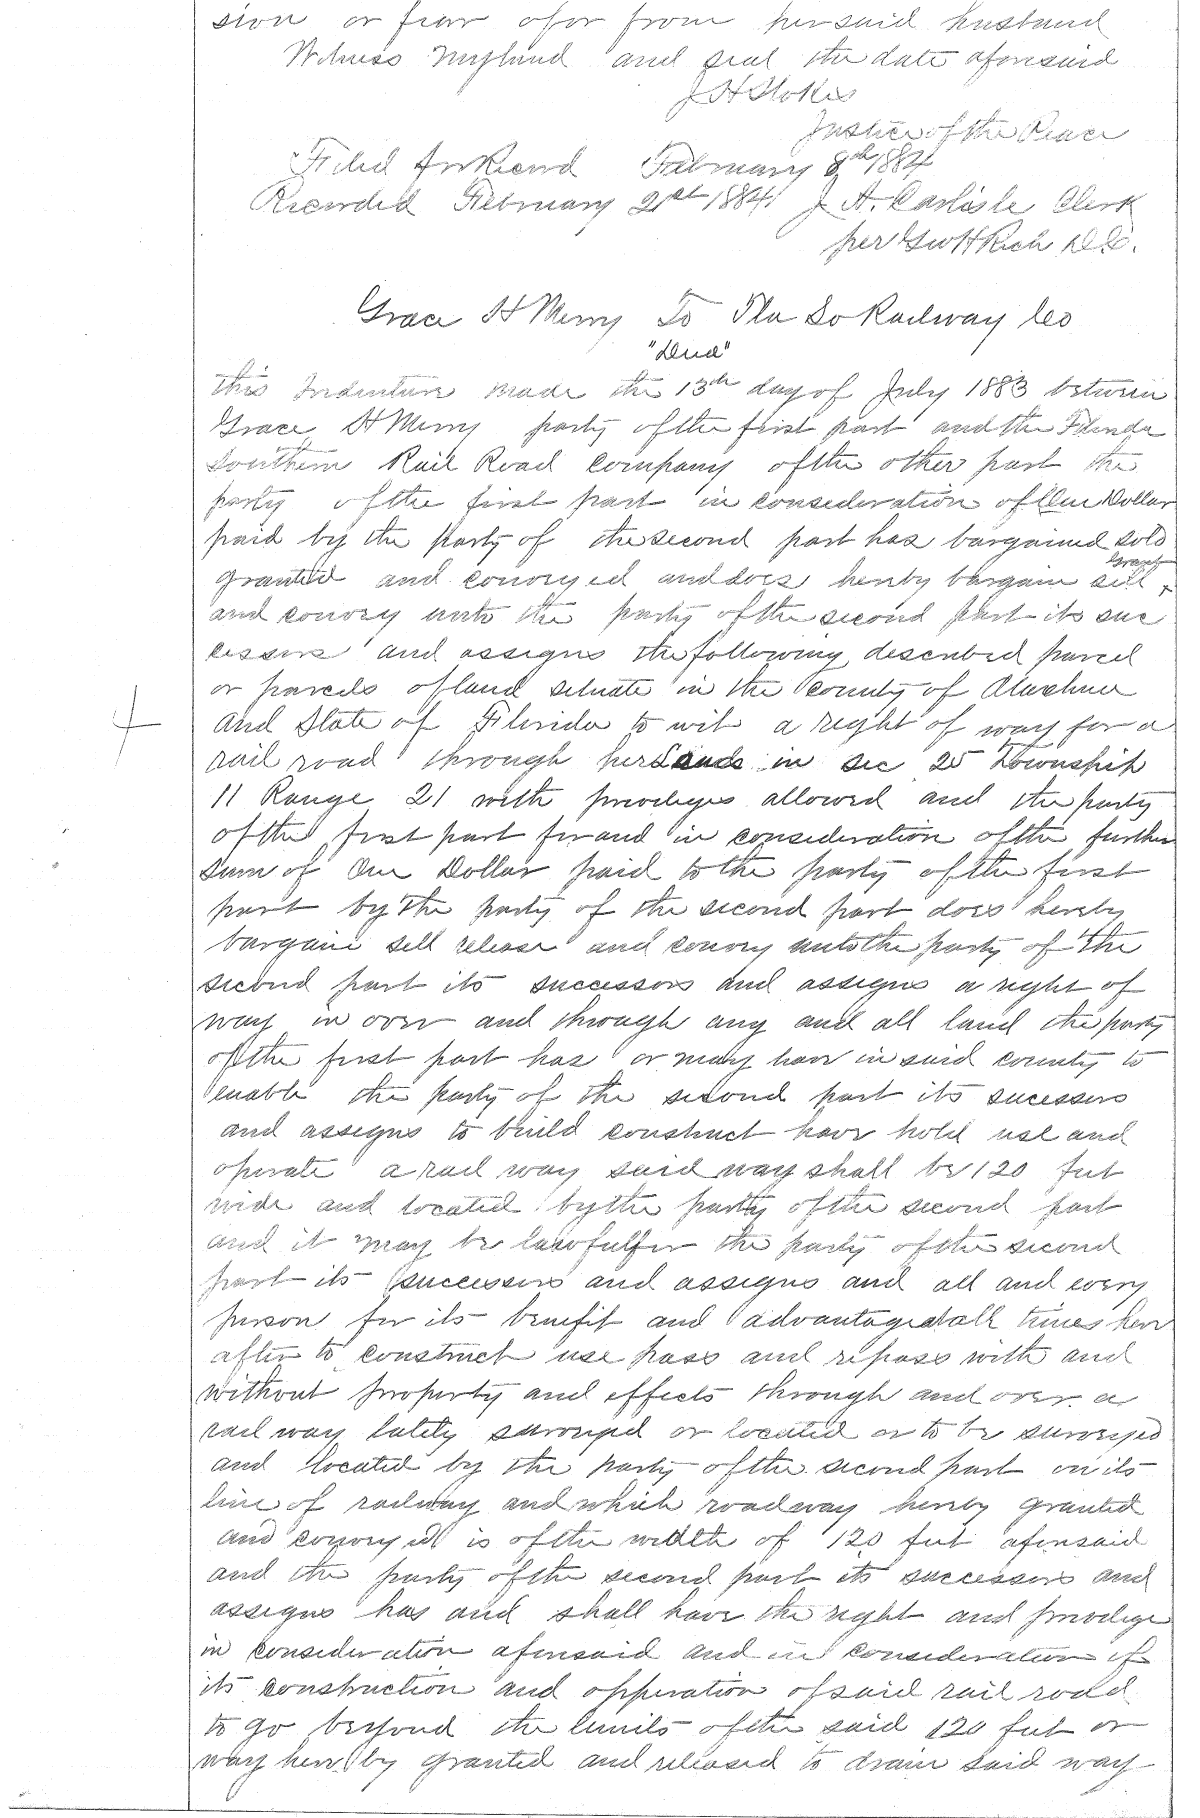 sion or fear of or from her said husband
Witness my hand and seal the date aforesaid
J H Stokes
Justice of the Peace
Filed for Record February 8th 1884
Recorded February 21st 1884 J A. Carlisle Clerk
per Geo H Rich D.C.
Grace H Merry To Fla So Railway Co
"Deed"
This Indenture made the 13th day of July 1883 between
Grace H Merry party of the first part and the Florida
Southern Rail Road Company of the other part the
party of the first part in consideration of One Dollar
paid by the party of the second part has bargained sold
granted and conveyed and does hereby bargain sell grant +
and convey unto the party of the second part its suc
cessors and assigns the following described parcel
or parcels of land situate in the county of Alachua
and State of Florida to wit a right of way for a
rail road through her Lands in sec 25 Township
11 Range 21 with privileges allowed and the party
of the first part for and in consideration of the further
sum of One Dollar paid to the party of the first
part by the party of the second part does hereby
bargain sell release and convey unto the party of the
second part its successors and assigns a right of
way in over and through any and all land the party
of the first part has or may have in said county to
enable the party of the second part its sucessors
and assigns to build construct have hold use and
operate a rail way said way shall be 120 feet
wide and located by the party of the second part
and it may be lawful for the party of the second
part its successors and assigns and all and every
person for its benefit and advantage at all times here
after to construct use pass and repass with and
without property and effects through and over a
rail way lately surveyed or located or to be surveyed
and located by the party of the second part on its
line of railway and which roadway hereby granted
and conveyed is of the width of 120 feet aforesaid
and the party of the second part its successors and
assigns has and shall have the right and privilege
in consideration aforesaid and in consideration of
its construction and opperation of said rail road
to go beyond the limits of the said 120 feet or
way hereby granted and released to drain said way